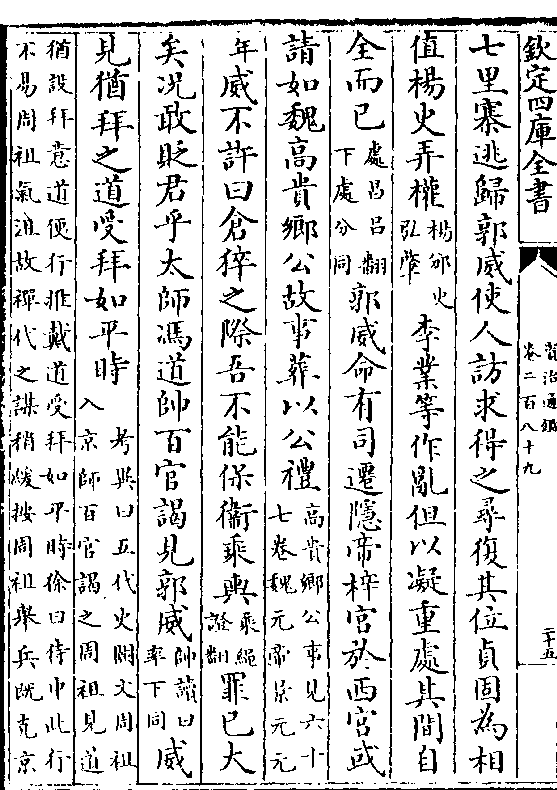 欽定四庫全書
資治通鑑
卷二百八十九
二十五
七里寨逃歸郭威使人訪求得之尋復其位貞固為相
值楊史弄權楊邠史弘肇李業等作亂但以凝重處其間自
全而已處昌呂翻下處分同郭威命有司遷隱帝梓宮於西宮或
請如魏高貴鄉公故事葬以公禮高貴鄉公事見六十七卷魏元帝景元元
年威不許曰倉猝之際吾不能保衛乘輿乘繩證翻罪已大
矣况敢貶君乎太師馮道帥百官謁見郭威帥讀曰率下同威
見猶拜之道受拜如平時考異曰五代史闕文周祖入京師百官謁之周祖見道
猶設拜意道便行推戴道受拜如平時徐曰侍中此行
不易周祖氣沮故禪代之謀稍緩按周祖舉兵既克京